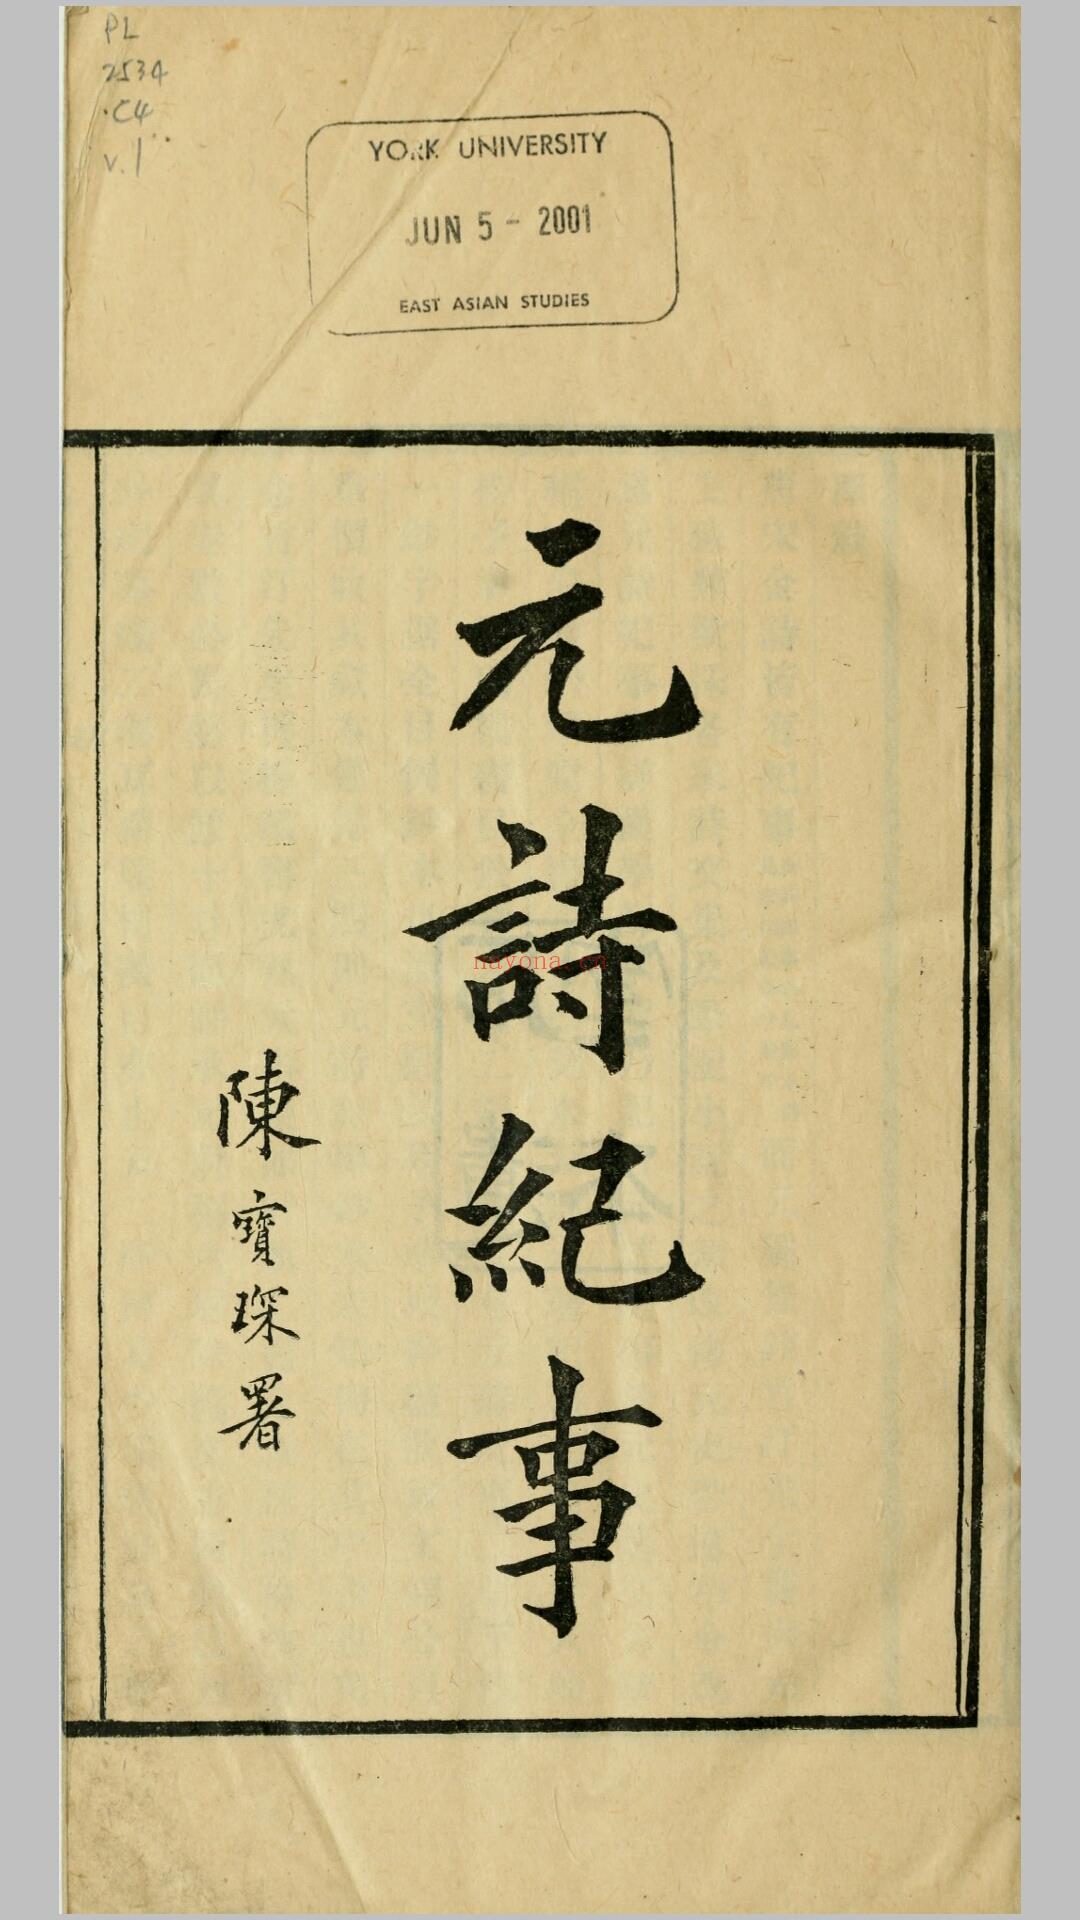 PL
2534
.C4
v.1
YORK UNIVERSITY
JUN 5 - 2001
EAST ASIAN STUDIES
元詩紀事
陳寶琛署
nayona.cn